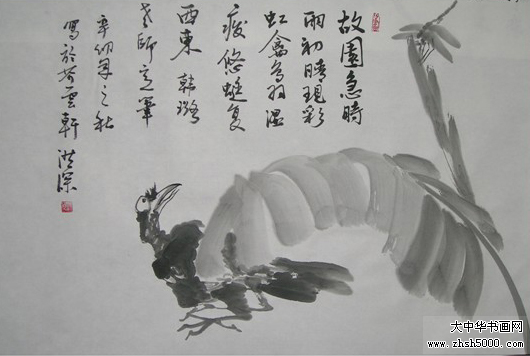 故園急時
雨初晴現彩
虹禽鳥羽湿
疲悠蜓复
西東 韓璐
老師之筆
辛卯年之秋
寫於芥雲軒 洪深
大中华书画网
www.zhsh5000.com